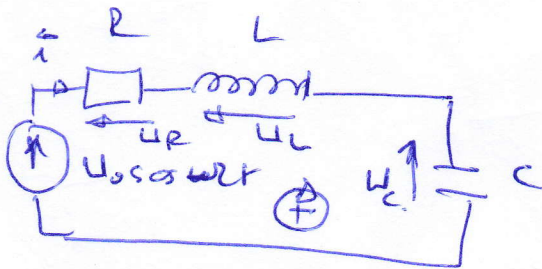 i R L
u_R u_L
u_0 cos ωt u_C C
+